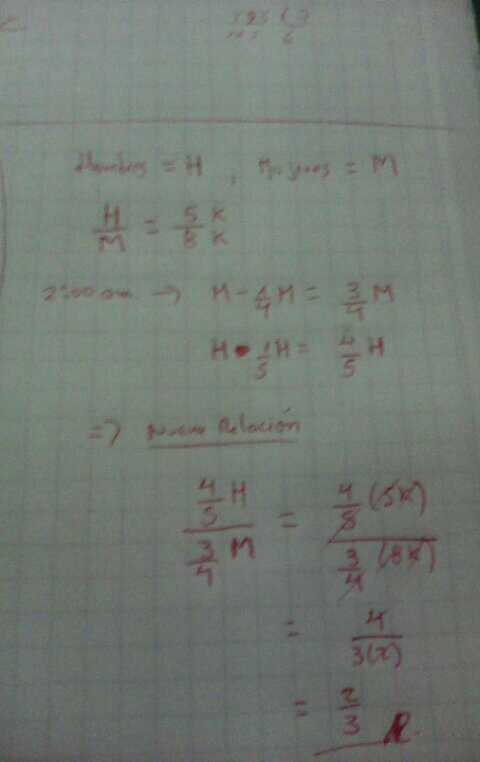 Hombres = H , Mujeres = M
H/M = 5K/8K
2:00 am. → M - 1/4 M = 3/4 M
H - 1/5 H = 4/5 H
=> Nueva Relación
(4/5 H)/(3/4 M) = (4/5 (5K))/(3/4 (8K))
= 4/(3(2))
= 2/3 R.